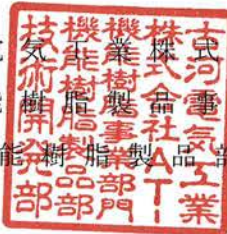 気工業株式
樹脂製品事
能樹脂製品部
古河電気工業
株式会社AT・
機能樹脂事業部門
機能樹脂製品部
技術開発部